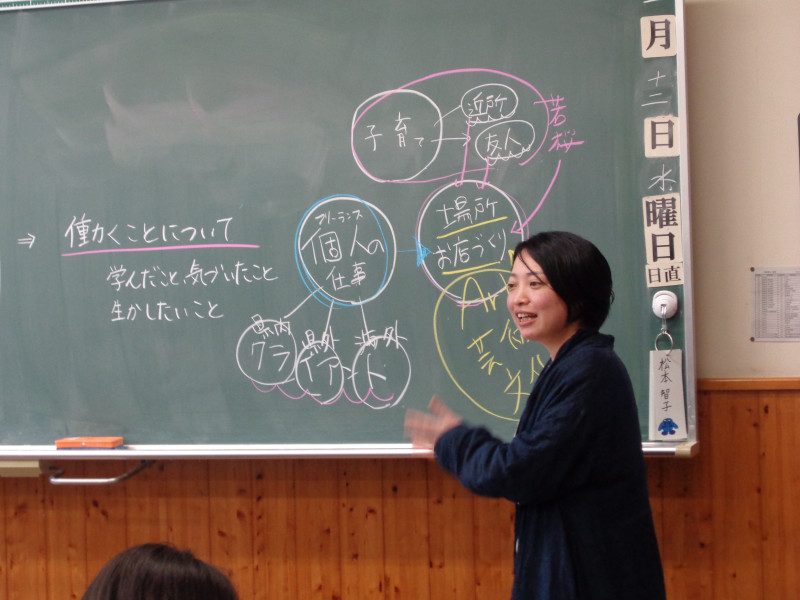 ⇒ 働くことについて
学んだこと、気づいたこと
生かしたいこと
子育て
近所
友人
若桜
フリーランス
個人の
仕事
場所
お店づくり
県内
県外
海外
グラ
Ar
芸
月
十二
日
水
曜
日
日直
松本智子